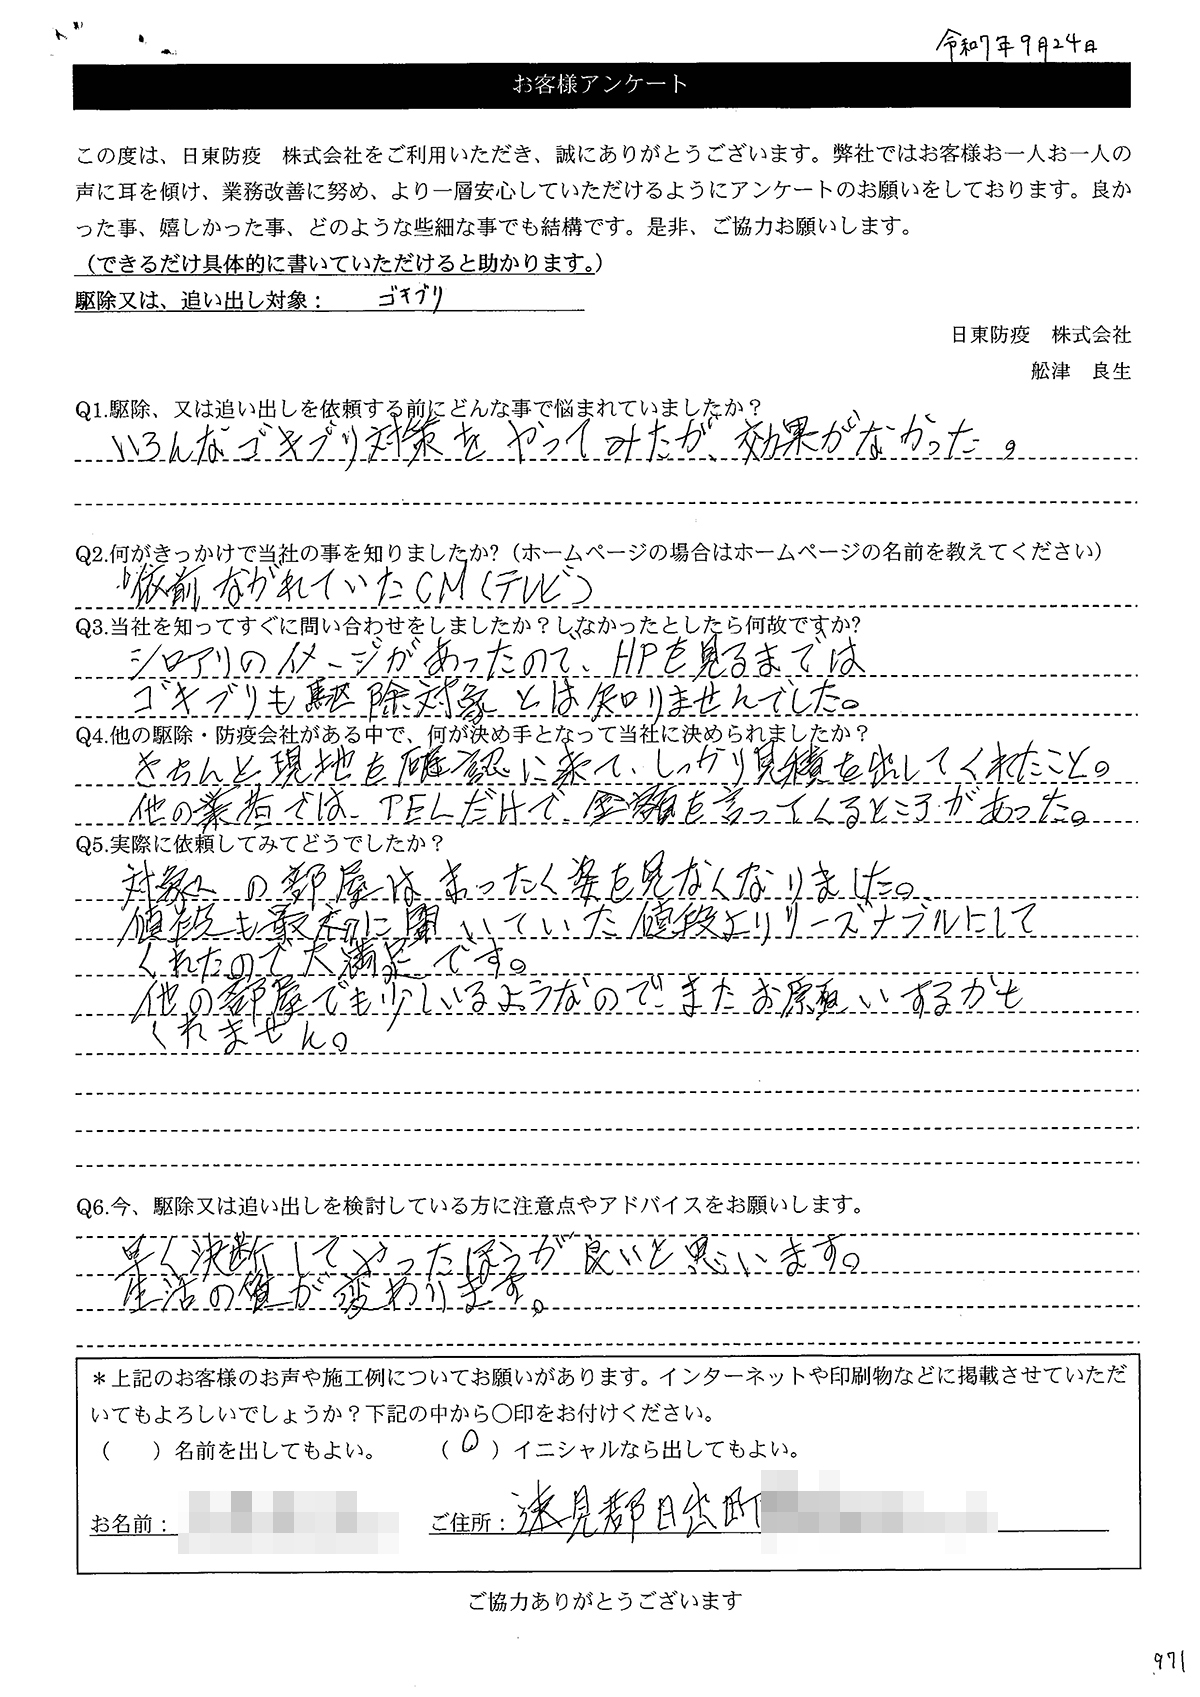 令和7年9月24日
お客様アンケート
この度は、日東防疫 株式会社をご利用いただき、誠にありがとうございます。弊社ではお客様お一人お一人の
声に耳を傾け、業務改善に努め、より一層安心していただけるようにアンケートのお願いをしております。良か
った事、嬉しかった事、どのような些細な事でも結構です。是非、ご協力お願いします。
（できるだけ具体的に書いていただけると助かります。）
駆除又は、追い出し対象： ゴキブリ
日東防疫 株式会社
舩津 良生
Q1.駆除、又は追い出しを依頼する前にどんな事で悩まれていましたか？
いろんなゴキブリ対策をやってみたが、効果がなかった。
Q2.何がきっかけで当社の事を知りましたか?（ホームページの場合はホームページの名前を教えてください）
依前ながれていたCM（テレビ）
Q3.当社を知ってすぐに問い合わせをしましたか？しなかったとしたら何故ですか?
シロアリのイメージがあったので、HPを見るまでは
ゴキブリも駆除対象とは知りませんでした。
Q4.他の駆除・防疫会社がある中で、何が決め手となって当社に決められましたか？
きちんと現地を確認に来て、しっかり見積を出してくれたこと。
他の業者では、TELだけで、金額を言ってくるところがあった。
Q5.実際に依頼してみてどうでしたか？
対象の部屋はまったく姿を見なくなりました。
値段も最初に聞いていた値段よりリーズナブルにして
くれたので大満足です。
他の部屋でも少しいるようなのでまたお願いするかも
くれません。
Q6.今、駆除又は追い出しを検討している方に注意点やアドバイスをお願いします。
早く決断してやったほうが良いと思います。
生活の質が変わります。
＊上記のお客様のお声や施工例についてお願いがあります。インターネットや印刷物などに掲載させていただ
いてもよろしいでしょうか？下記の中から〇印をお付けください。
（ ）名前を出してもよい。 （〇）イニシャルなら出してもよい。
お名前： ご住所：速見郡日出町
ご協力ありがとうございます
971